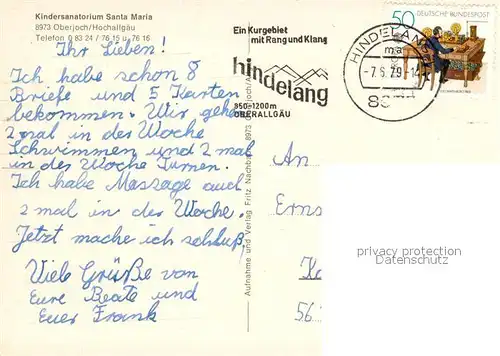 Kindersanatorium Santa Maria
8973 Oberjoch/Hochallgäu
Telefon 0 83 24 / 76 15 u 76 16
Ihr Lieben!
Ich habe schon 8
Briefe und 5 Karten
bekommen. Wir gehen
2 mal in der Woche
Schwimmen und 2 mal
in der Woche Turnen.
Ich habe Massage auch
2 mal in der Woche.
Jetzt mache ich schluß,
Viele Grüße von
Eure Beate und
Euer Frank
Aufnahme und Verlag Fritz Nachb 8973 Oberjoch/A
Ein Kurgebiet
mit Rang und Klang
hindelang
850-1200m
OBERALLGÄU
HINDELANG
-7.6.79-14
50 DEUTSCHE BUNDESPOST
An
Erns
56
privacy protection
Datenschutz